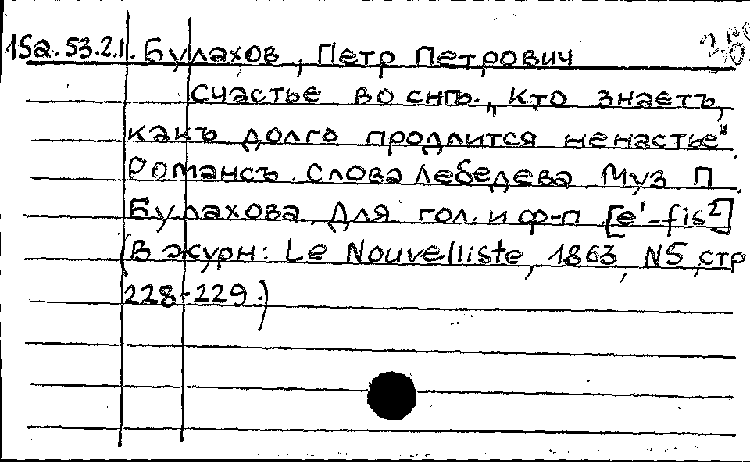 15a.53.2.1. Булахов, Петр Петрович
Счастье во снѣ. „Кто знаетъ,
какъ долго продлится ненастье"
Романсъ. Слова Лебедева Муз П.
Булахова Для гол. и ф-п [e'-fis²]
(В журн: Le Nouvelliste, 1863, N5, стр
228-229.)